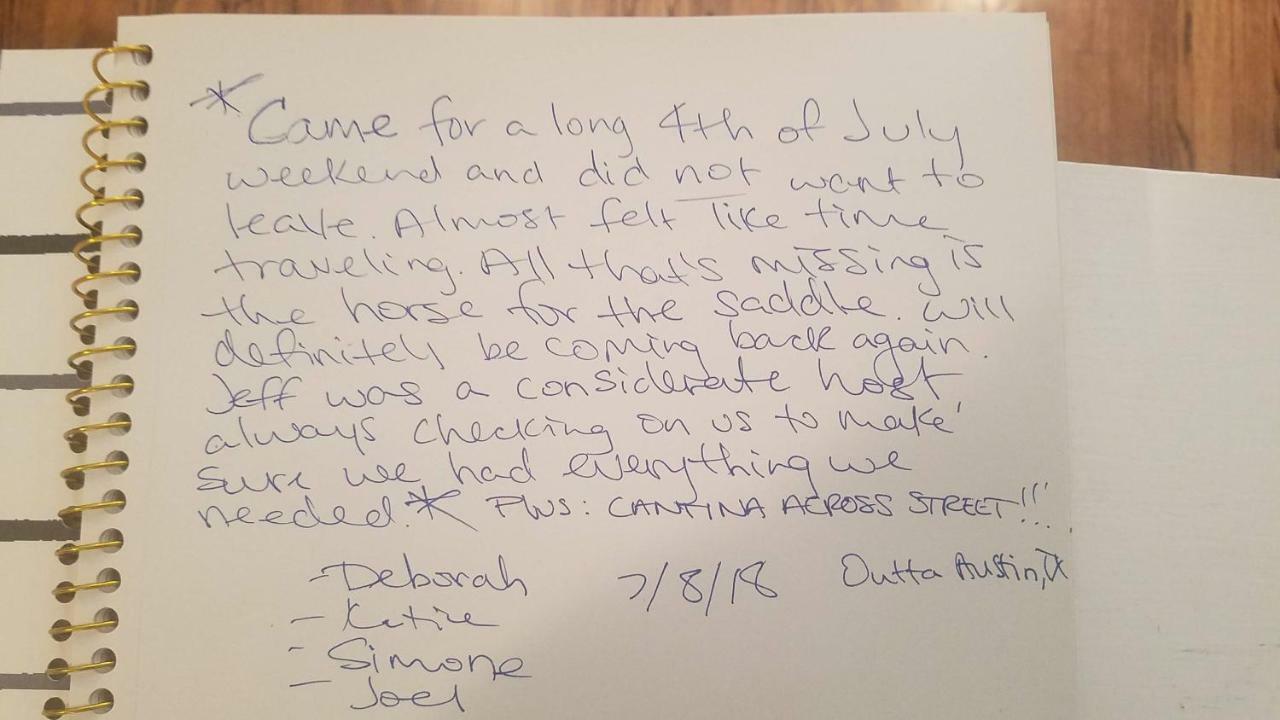 * Came for a long 4th of July
weekend and did not want to
leave. Almost felt like time
traveling. All that's missing is
the horse for the saddle. Will
definitely be coming back again.
Jeff was a considerate host
always checking on us to make
sure we had everything we
needed.* PLUS: CANTINA ACROSS STREET!!!
- Deborah 7/8/18 Outta Austin, TX
- Katie
- Simone
- Joel